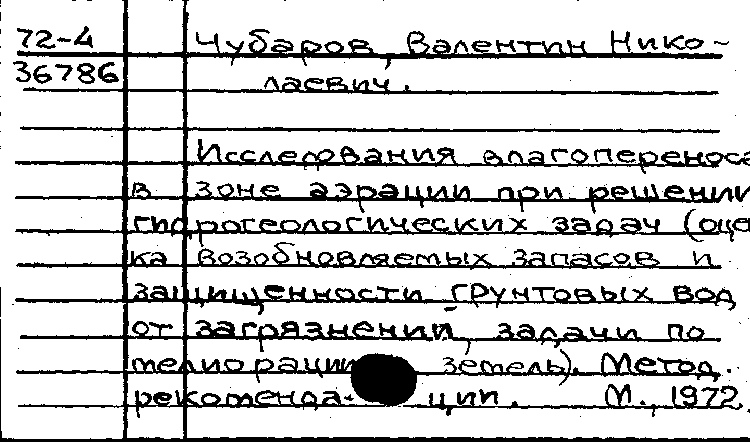 72-4 Чубаров, Валентин Нико-
36786 лаевич.
Исследования влагопереноса
в зоне аэрации при решении
гидрогеологических задач (оцен
ка возобновляемых запасов и
защищенности грунтовых вод
от загрязнений, задачи по
мелиорации земель). Метод.
рекоменда- ции. М., 1972.